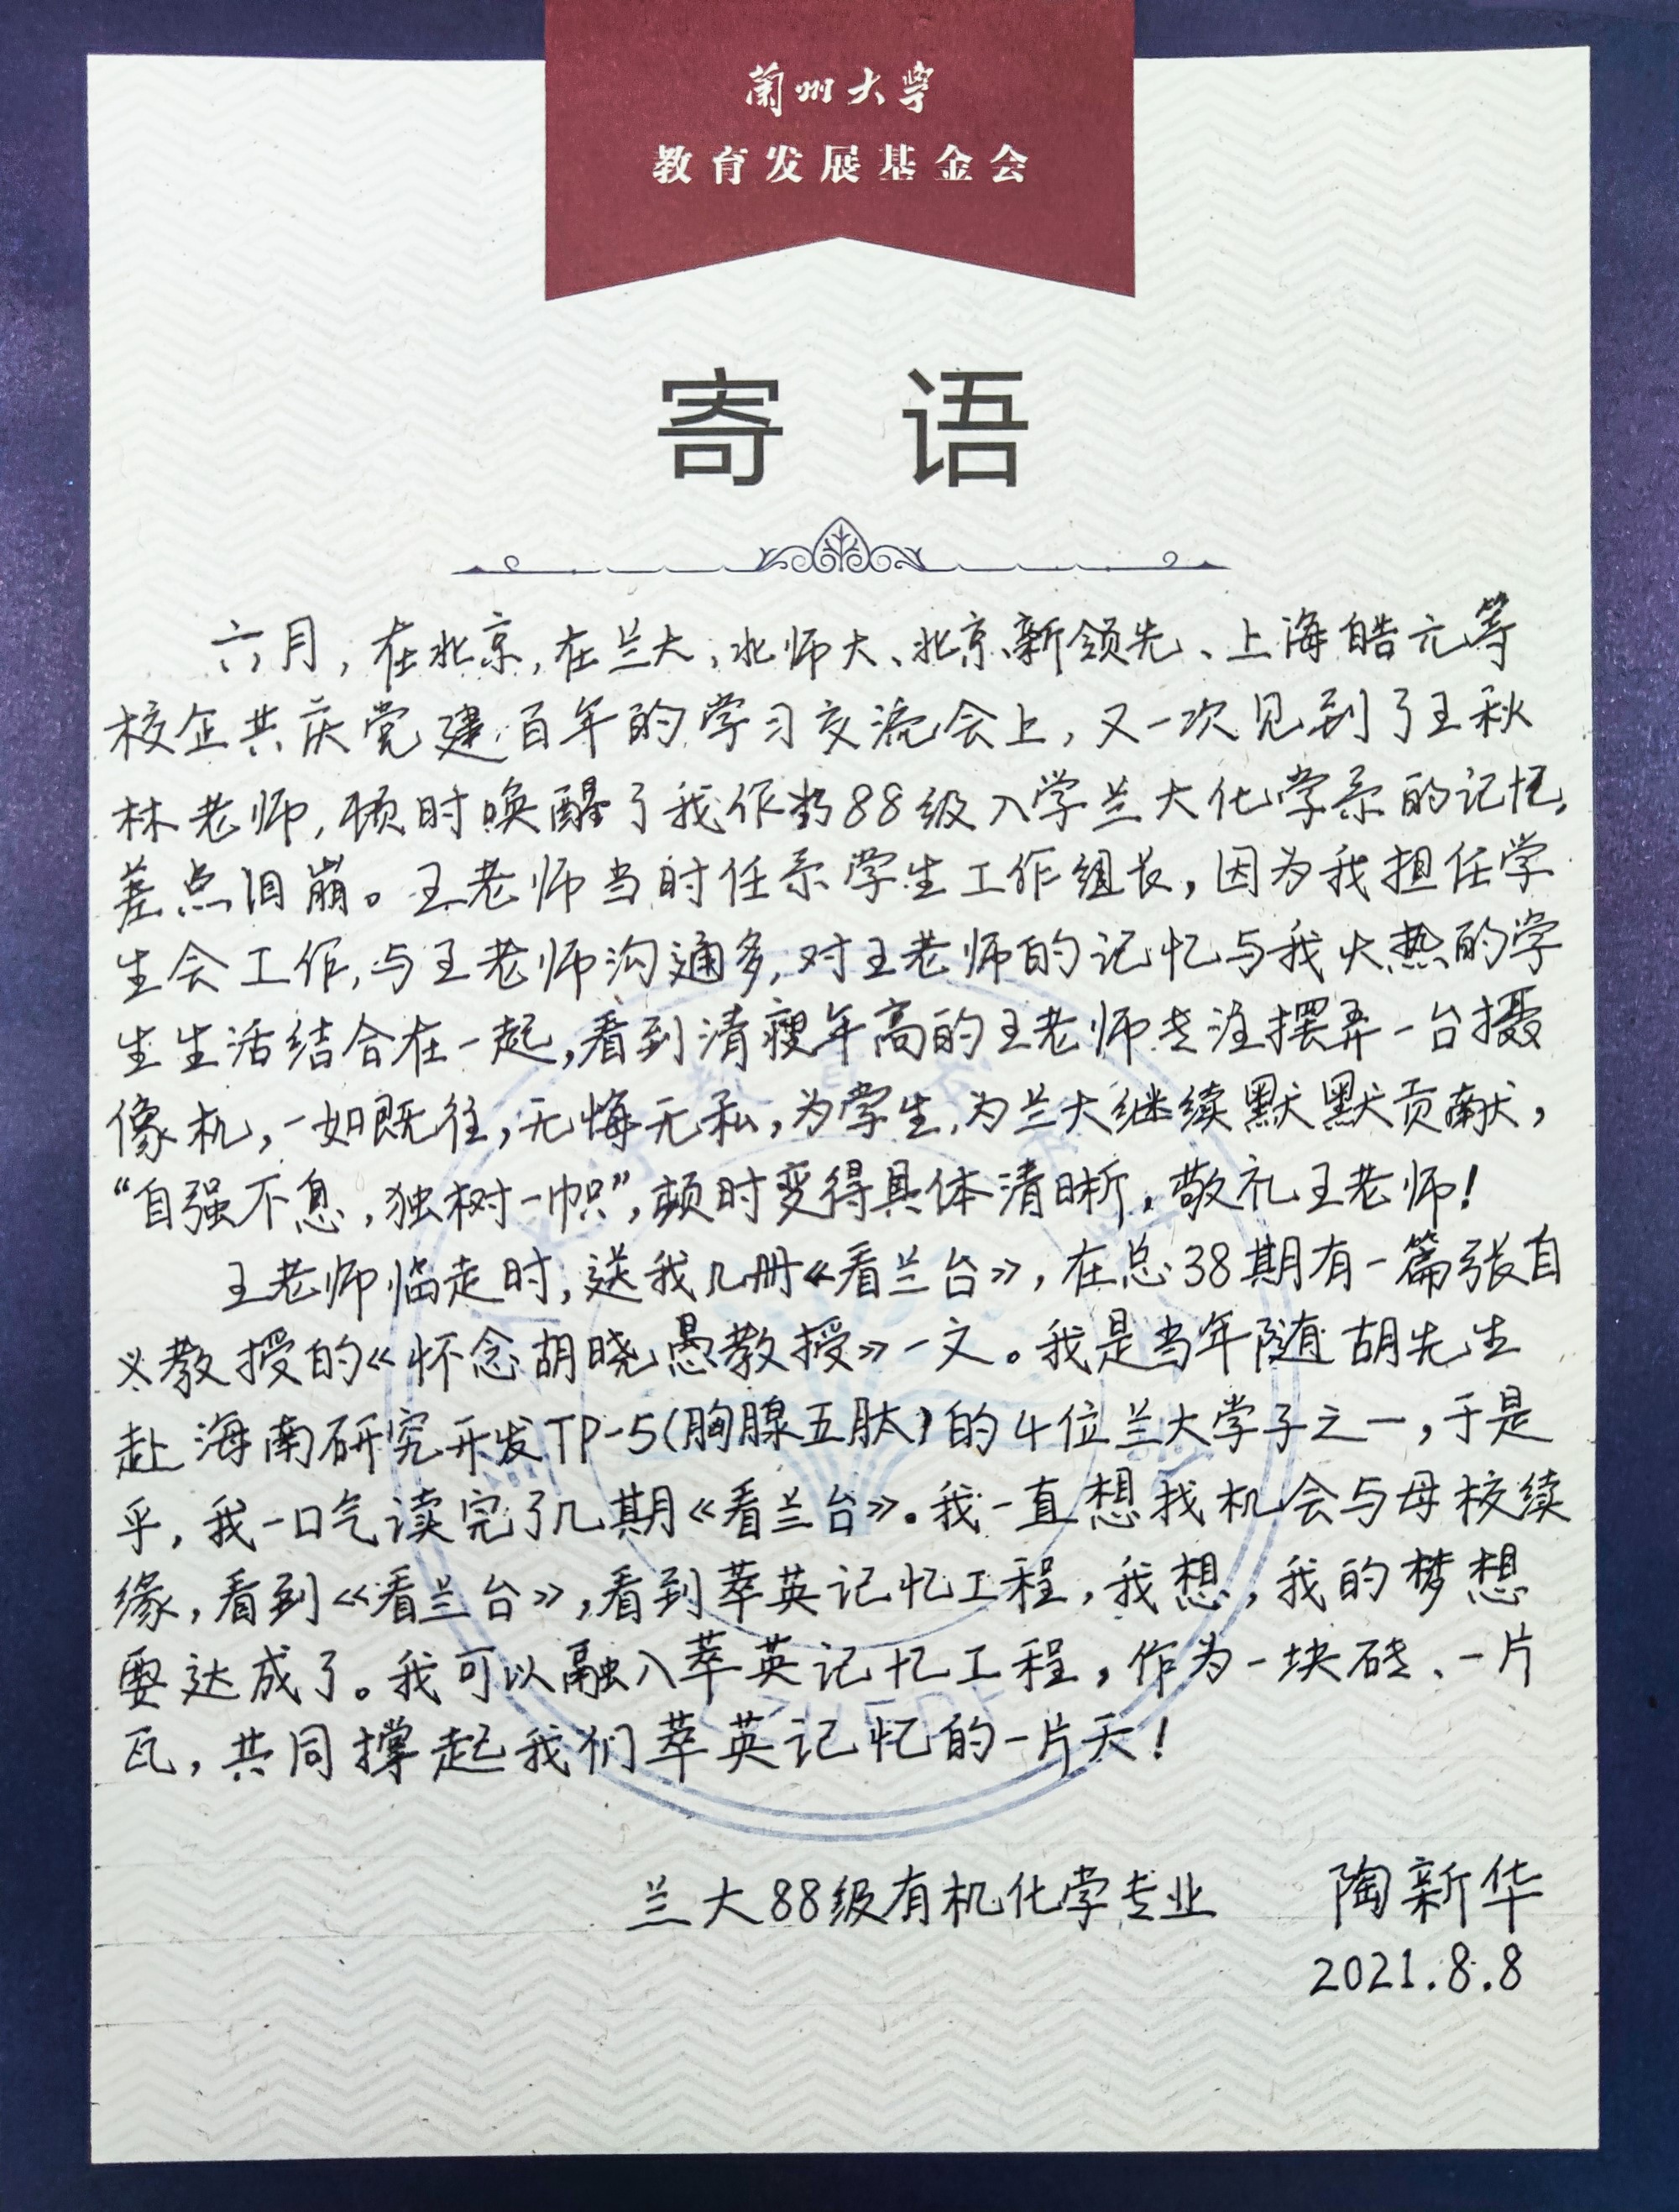 兰州大学
教育发展基金会
寄 语
六月,在北京,在兰大、北师大、北京新领先、上海皓元等
校企共庆党建百年的学习交流会上,又一次见到了王秋
林老师,顿时唤醒了我作为88级入学兰大化学系的记忆,
差点泪崩。王老师当时任系学生工作组长,因为我担任学
生会工作,与王老师沟通多,对王老师的记忆与我火热的学
生生活结合在一起,看到清瘦年高的王老师专注摆弄一台摄
像机,一如既往,无悔无私,为学生,为兰大继续默默贡献,
“自强不息,独树一帜”,顿时变得具体清晰,敬礼王老师!
王老师临走时,送我几册《看兰台》,在总38期有一篇张自
义教授的《怀念胡晓愚教授》一文。我是当年随胡先生
赴海南研究开发TP-5(胸腺五肽)的4位兰大学子之一,于是
乎,我一口气读完了几期《看兰台》。我一直想找机会与母校续
缘,看到《看兰台》,看到萃英记忆工程,我想,我的梦想
要达成了。我可以融入萃英记忆工程,作为一块砖、一片
瓦,共同撑起我们萃英记忆的一片天!
兰大88级有机化学专业 陶新华
2021.8.8